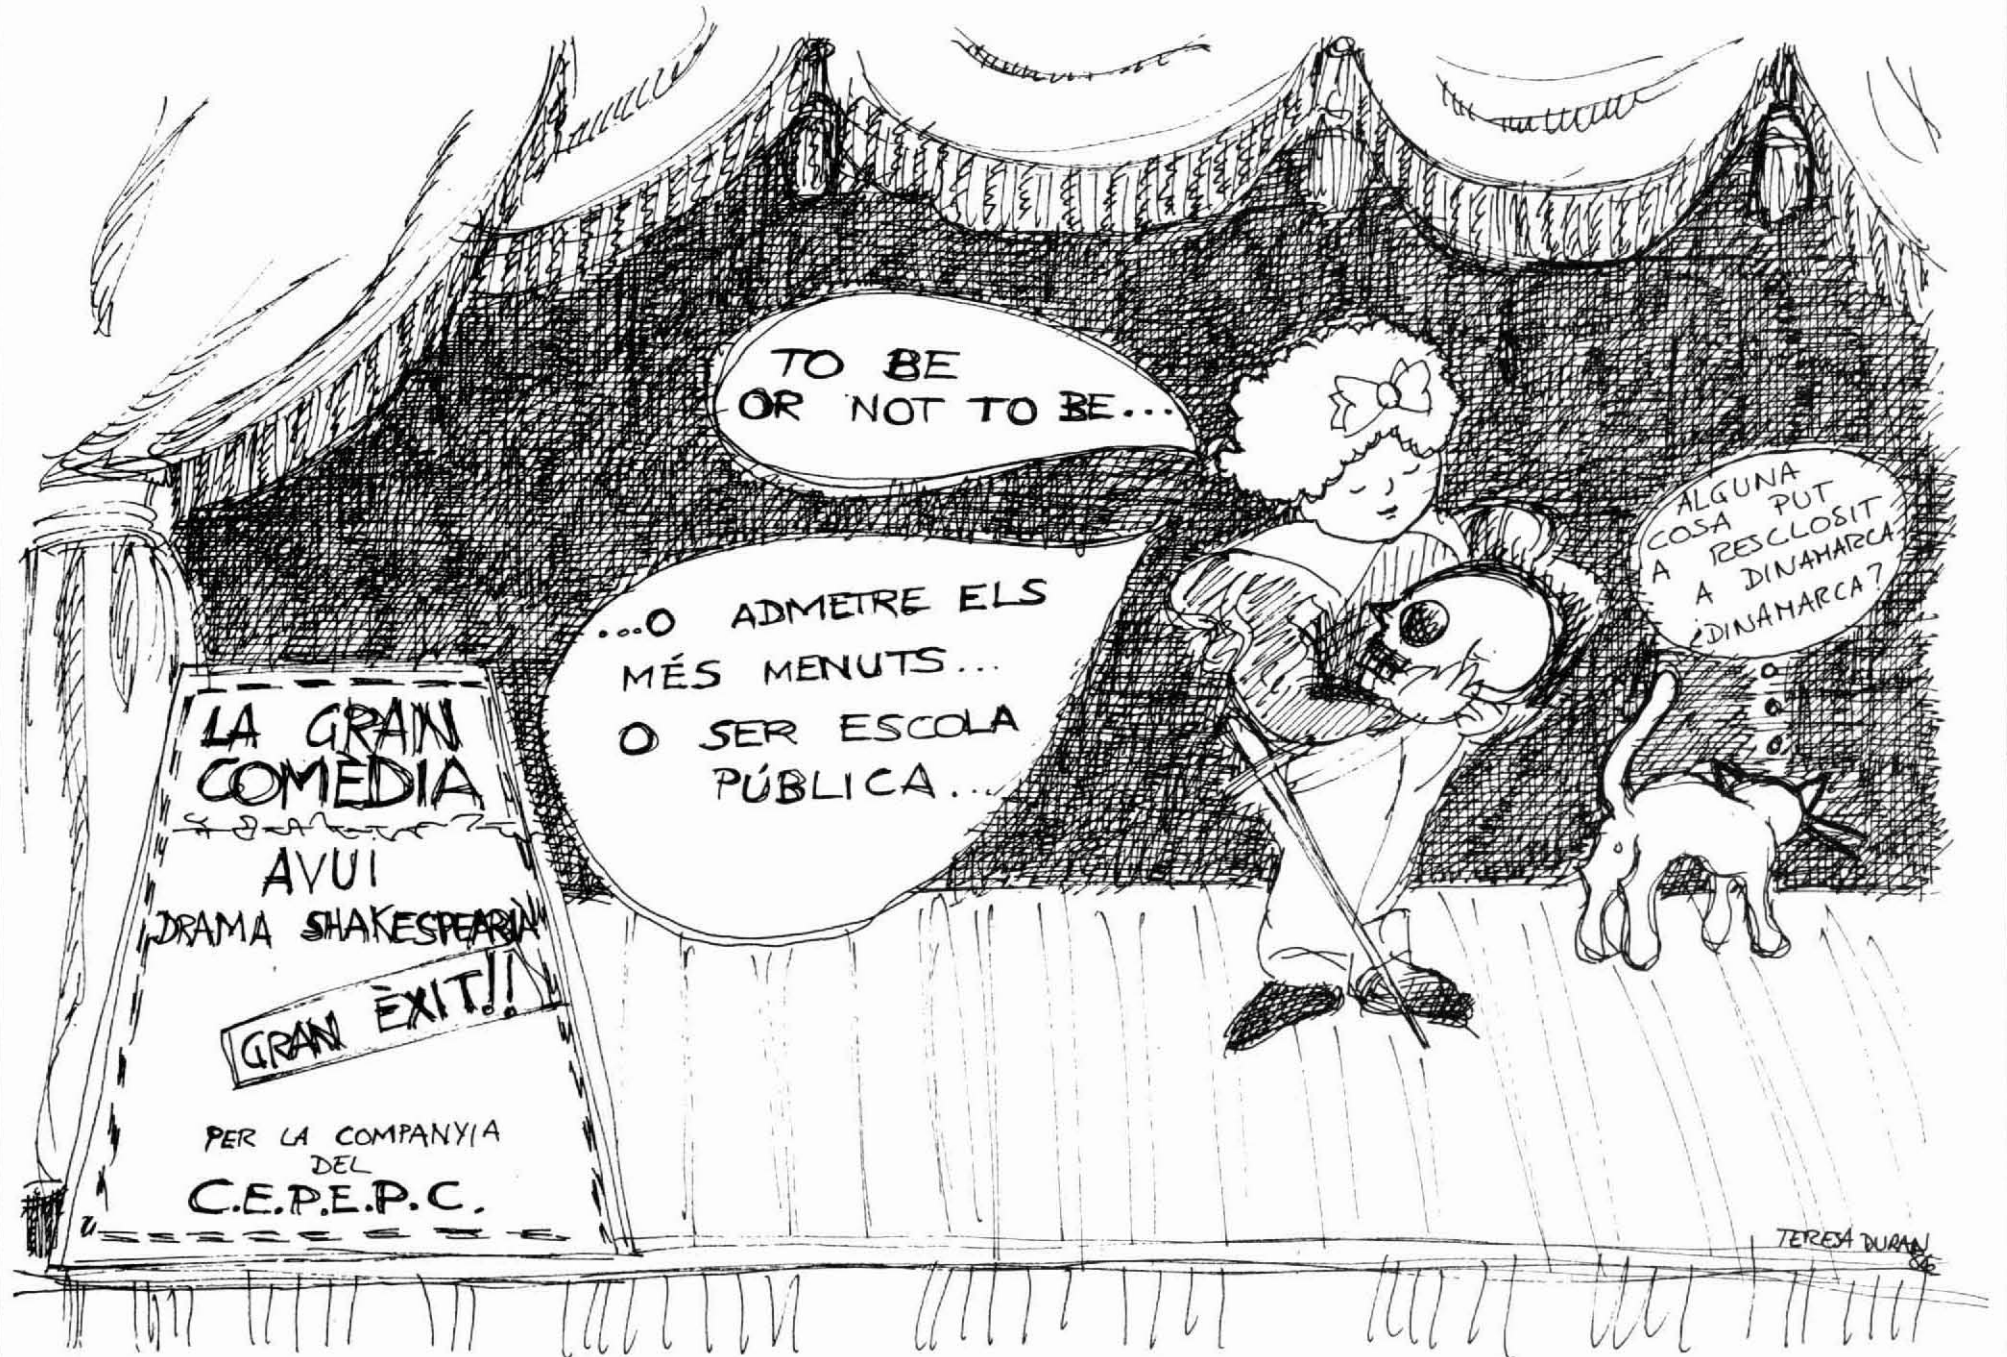 TO BE
OR NOT TO BE...
...O ADMETRE ELS
MÉS MENUTS...
O SER ESCOLA
PÚBLICA...
ALGUNA
COSA PUT
A RESCLOSIT
A DINAMARCA.
¿DINAMARCA?
LA GRAN
COMÈDIA
AVUI
DRAMA SHAKESPEARIÀ
GRAN ÈXIT!!
PER LA COMPANYIA
DEL
C.E.P.E.P.C.
TERESA DURAN